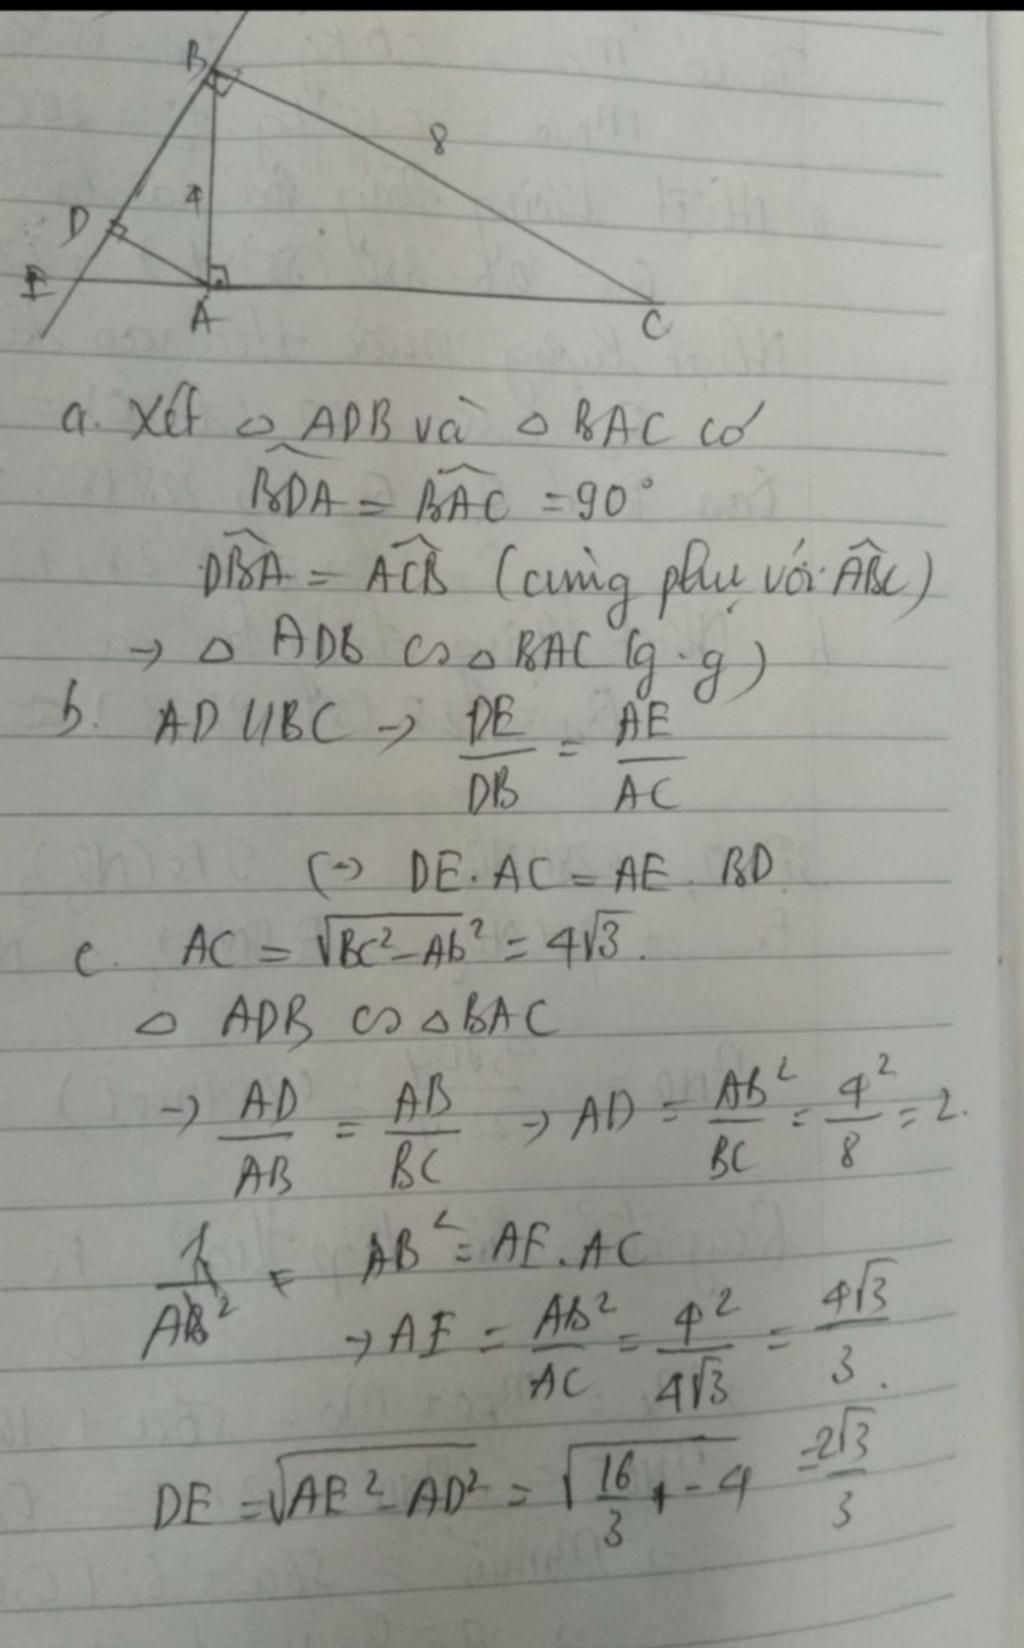 B
8
4
D
E
A
C
a. Xét △ ADB và △ BAC có
$\widehat{BDA} = \widehat{BAC} = 90°$
$\widehat{DBA} = \widehat{ACB}$ (cùng phụ với $\widehat{ABC}$)
→ △ ADB ∽ △ BAC (g.g)
b. AD // BC → $\frac{DE}{DB} = \frac{AE}{AC}$
(→) DE. AC = AE. BD
c. AC = $\sqrt{BC^2 - Ab^2}$ = 4√3.
△ ADB ∽ △ BAC
→ $\frac{AD}{AB} = \frac{AB}{BC}$ → AD = $\frac{AB^2}{BC} = \frac{4^2}{8}$ = 2.
$\frac{1}{AB^2}$ = AB² = AE. AC
→ AE = $\frac{AB^2}{AC} = \frac{4^2}{4\sqrt{3}} = \frac{4\sqrt{3}}{3}$.
DE = $\sqrt{AE^2 - AD^2} = \sqrt{\frac{16}{3} - 4} = \frac{2\sqrt{3}}{3}$